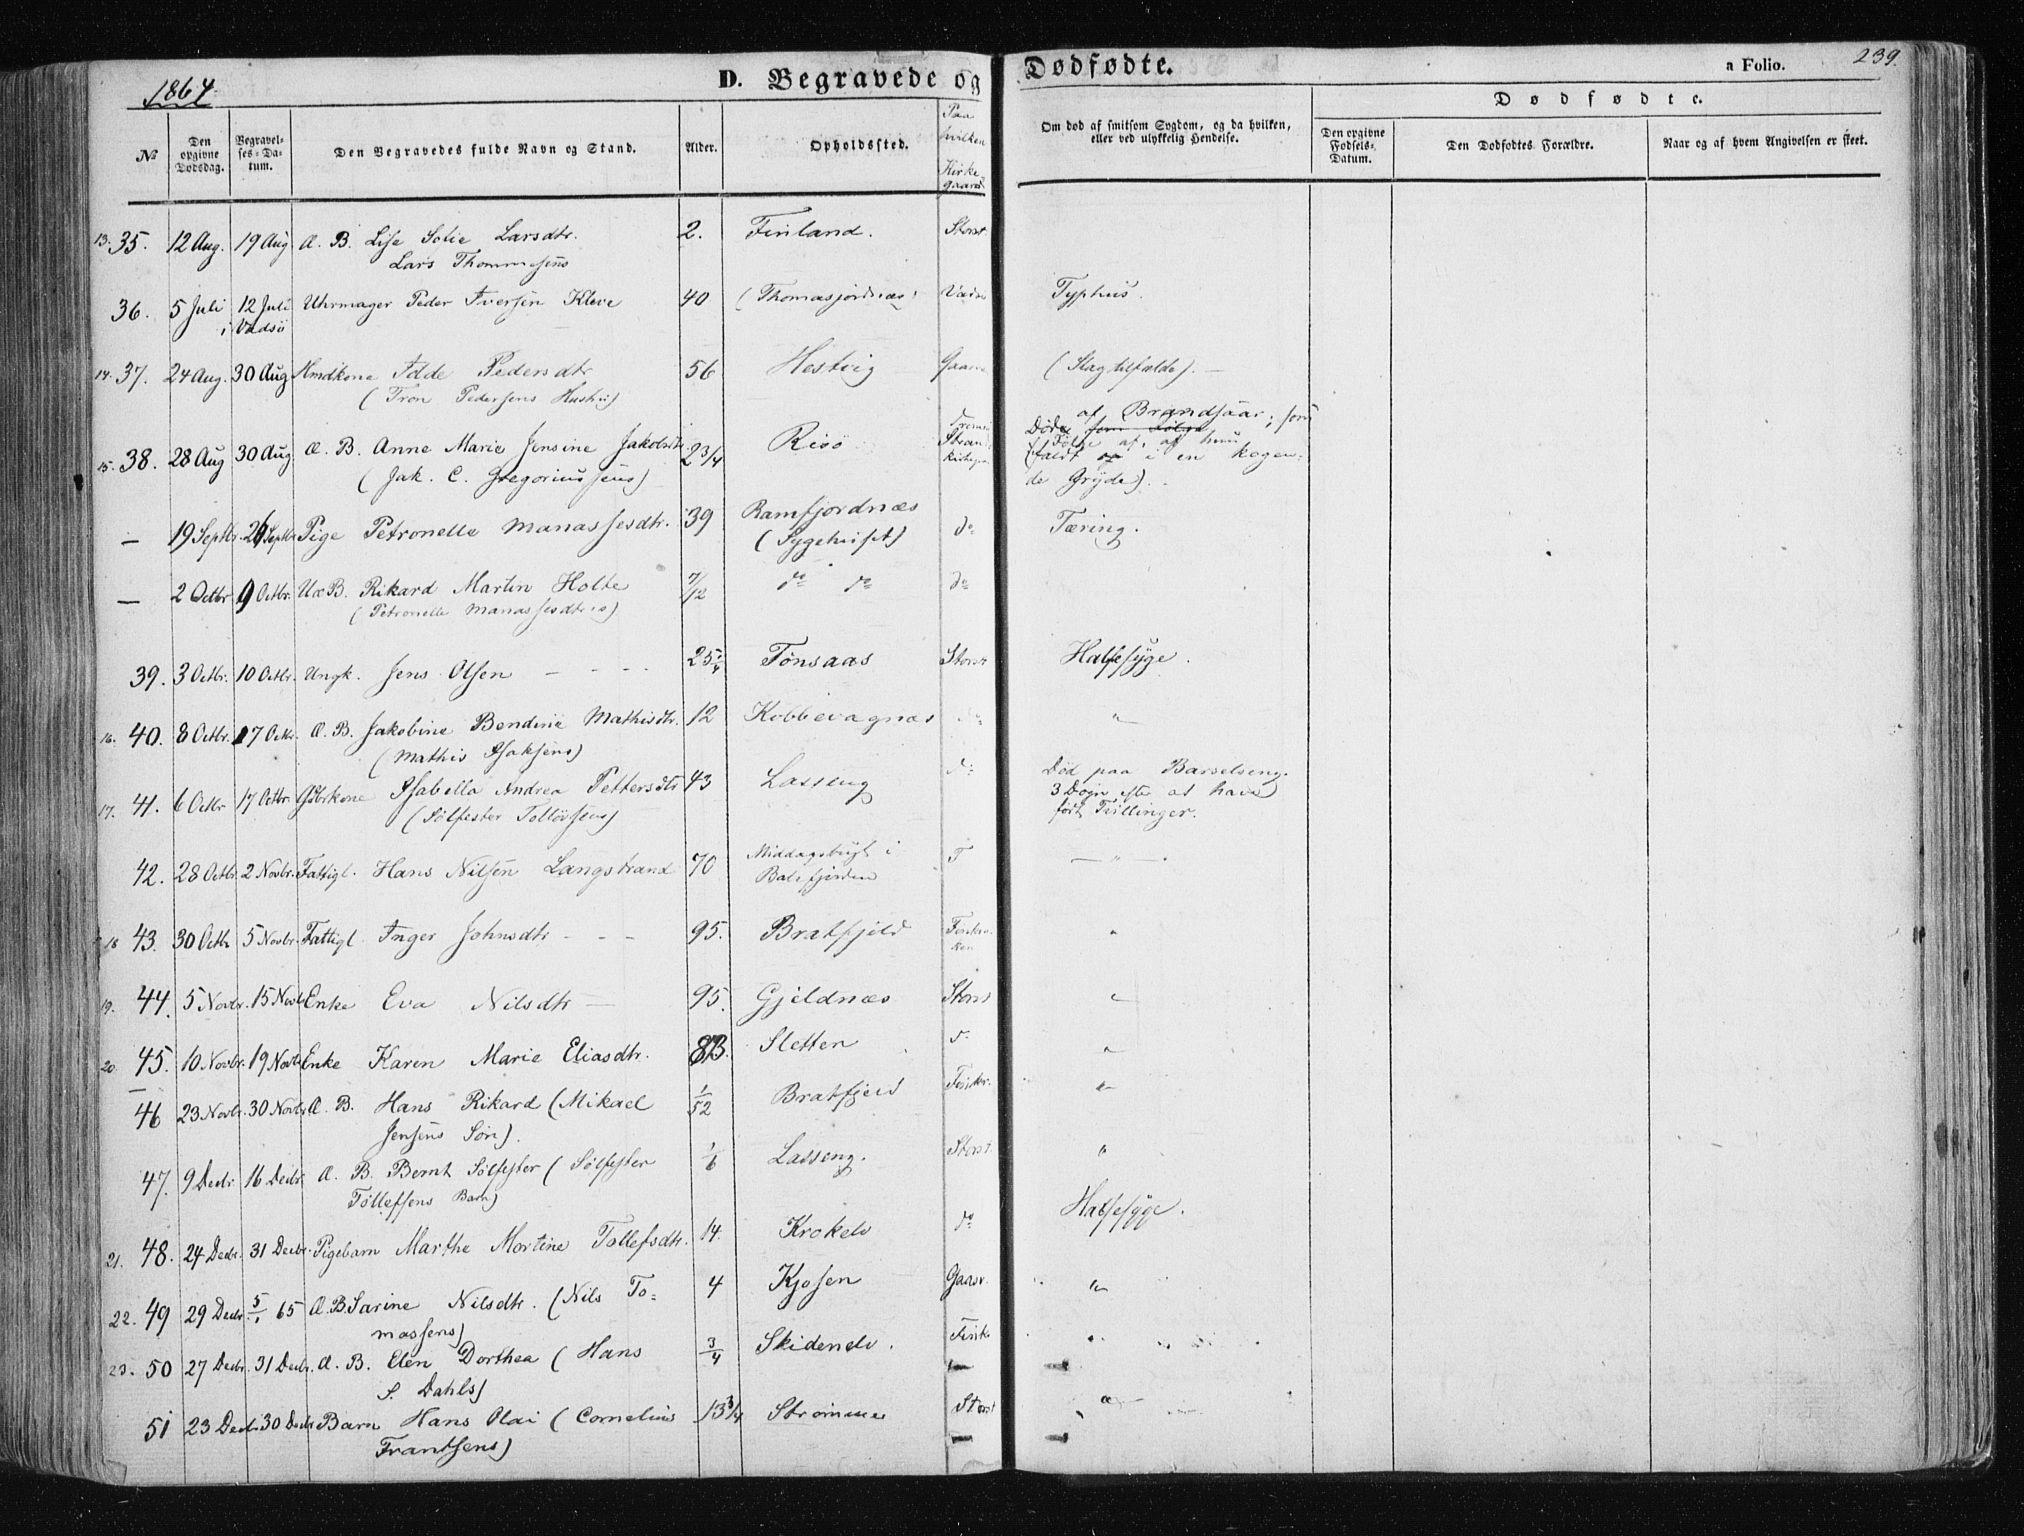 1864 D. Begravede og Dødfødte. a Folio. 239.
No
Den opgivne Dødsdag.
Begravelses-Datum.
Den Begravedes fulde Navn og Stand.
Alder.
Opholdssted.
Paa hvilken Kirkegaard
Om død af smitsom Sygdom, og da hvilken, eller ved ulykkelig Hendelse.
Dødfødte.
Den opgivne Fødsels-Datum.
Den Dødfødtes Forældre.
Naar og af hvem Angivelsen er skeet.
13. 35. 12 Aug. 19 Aug Æ. B. Lise Sofie Larsdtr. 2. Finland. Storst
Lars Thommesens
36. 5 Juli 12 Juli Uhrmager Peder Iversen Kleve 40 (Thomasjordnæs) Vads Typhus.
i Vadsö
14. 37. 24 Aug. 30 Aug Hmdkone Peders dtr 56 Hestvig Gaasv (Slagtilfælde). —
(Tron Pedersens Hustru)
15. 38. 28 Aug 30 Aug Æ. B. Anne Marie Jensine Jakobsdtr. 2 3/4 Risö Tromsö Strand Kirkegaa
(Jak. C. Gregoriussens)
af Brandsaar; som
Døde som Følge
(Følge af, at hun
faldt op i en kogen-
de Gryde).
— 19 Septbr. 26 Septbr Pige Petronelle Manassesdtr. 39 Ramfjordnæs do Tæring.
(Sygehuset)
— 2 Octbr 9 Octbr. Uæ B. Rikard Martin Holte 7/12 do do do
(Petronelle Manassesdtrs)
39. 3 Octbr. 10 Octbr. Ungk. Jens Olsen — - - - 25 1/4 Tönsaas Storst Halssyge.
16. 40. 8 Octbr. 17 Octbr. Æ. B. Jakobine Bendine Mathisdtr. 12 Kobbevagnæs do "
(Mathis Isaksens)
17. 41. 6 Octbr 17 Octbr. Isabella Andrea Pettersdtr 43 Lasseng do Død paa Barselseng.
(Sölfester Tollövsens) 3 Døgn efter at have
født Tvillinger.
42. 28 Octbr. 2 Novbr. Fattigl. Hans Nilsen Langstrand 70 Middagsbugt i T — " — .
Balsfjorden
18 43. 30 Octb 5 Novbr. Fattigl. Inger Johnsdtr - - - 95. Bratfjeld Finkro "
ken
19. 44. 5 Novbr. 15 Novb Enke Eva Nilsdtr — 95. Gjeldnæs Storst "
20. 45. 10 Novbr. 19 Novb Enke Karen Marie Eliasdtr. 83. Sletten do "
46 23 Novbr. 30 Novbr. Æ. B. Hans Rikard (Mikael 1/52 Bratfjeld Finkr. "
Jensens Sön).
47. 9 Decbr. 16 Decbr. Æ. B. Bernt Sölfester (Sölfester 1/6 Lasseng. Storst. "
Tollefsens Barn)
21. 48. 24 Decbr. 31 Decbr. Pigebarn Marthe Mortine Tollefsdtr. 14. Krokelv do Halssyge.
22. 49 29 Decbr. 5/1 65 Æ. B. Sarine Nilsdtr. (Nils To- 4 Kjosen Gaasv. "
massens)
23. 50 27 Decbr. 31 Decbr. Æ. B. Elen Dorthea (Hans 3/4 Skidenelv. Finkr "
S. Dahls)
51 23 Decbr. 30 Decbr Barn Hans Olai (Cornelius 13 3/4 Strömmen Storst "
Frantsens)